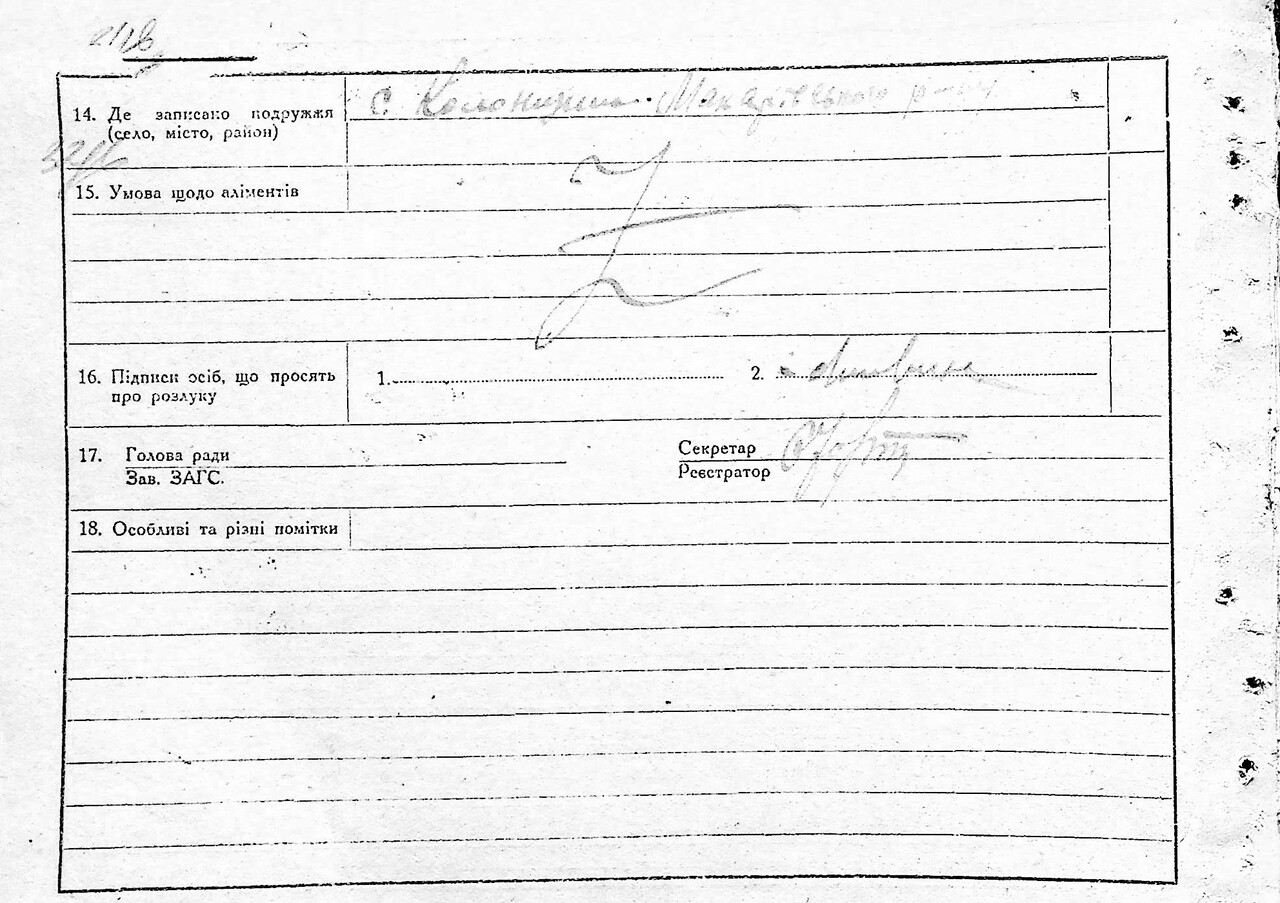 14. Де записано подружжя
(село, місто, район)
с. Макарівського р-ну
15. Умова щодо аліментів
16. Підписи осіб, що просять
про розлуку
1.
2.
17. Голова ради
Зав. ЗАГС.
Секретар
Реєстратор
18. Особливі та різні помітки